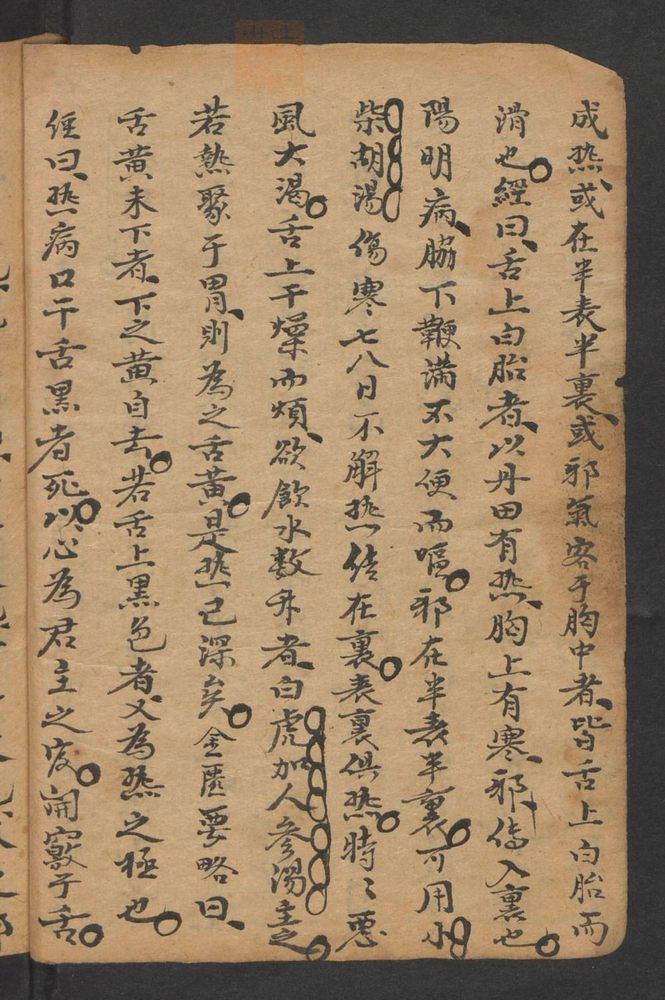 成热、或在半表半裏、或邪氣客于胸中者、皆舌上白胎而
滑也。經曰、舌上白胎者、以丹田有热、胸上有寒、邪傳入裏也。
陽明病、脇下鞕满不大便而嘔。邪在半表半裏。可用小
柴胡湯傷寒七八日不解热结在裏。表裏俱热。時〻惡
風大渴。舌上干燥而煩、欲飲水数升者、白虎加人参湯主之。
若熱聚于胃、則為之舌黄。是热已深矣。金匱要略曰、
舌黄未下者、下之黄自去。若舌上黑色者、又為热之極也。
經曰、热病口干舌黑者死。以心為君主之官。開竅于舌。